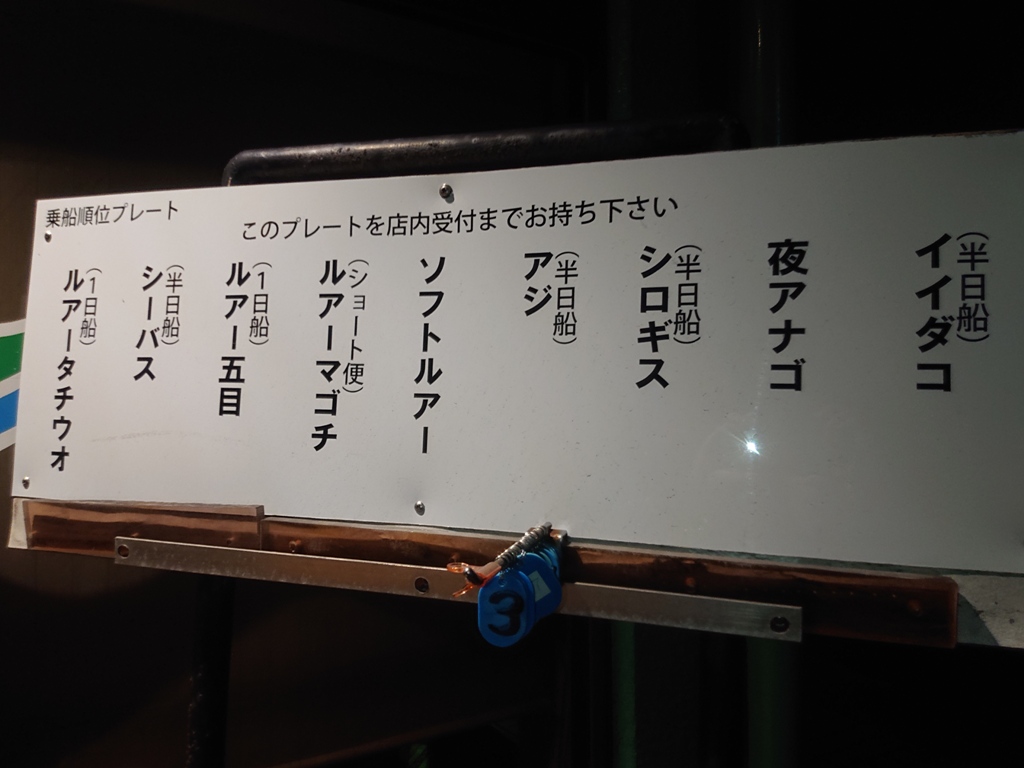 乗船順位プレート
このプレートを店内受付までお持ち下さい
(半日船)
イイダコ
夜アナゴ
(半日船)
シロギス
(半日船)
アジ
ソフトルアー
(ショート便)
ルアーマゴチ
(1日船)
ルアー五目
(半日船)
シーバス
(1日船)
ルアータチウオ
3